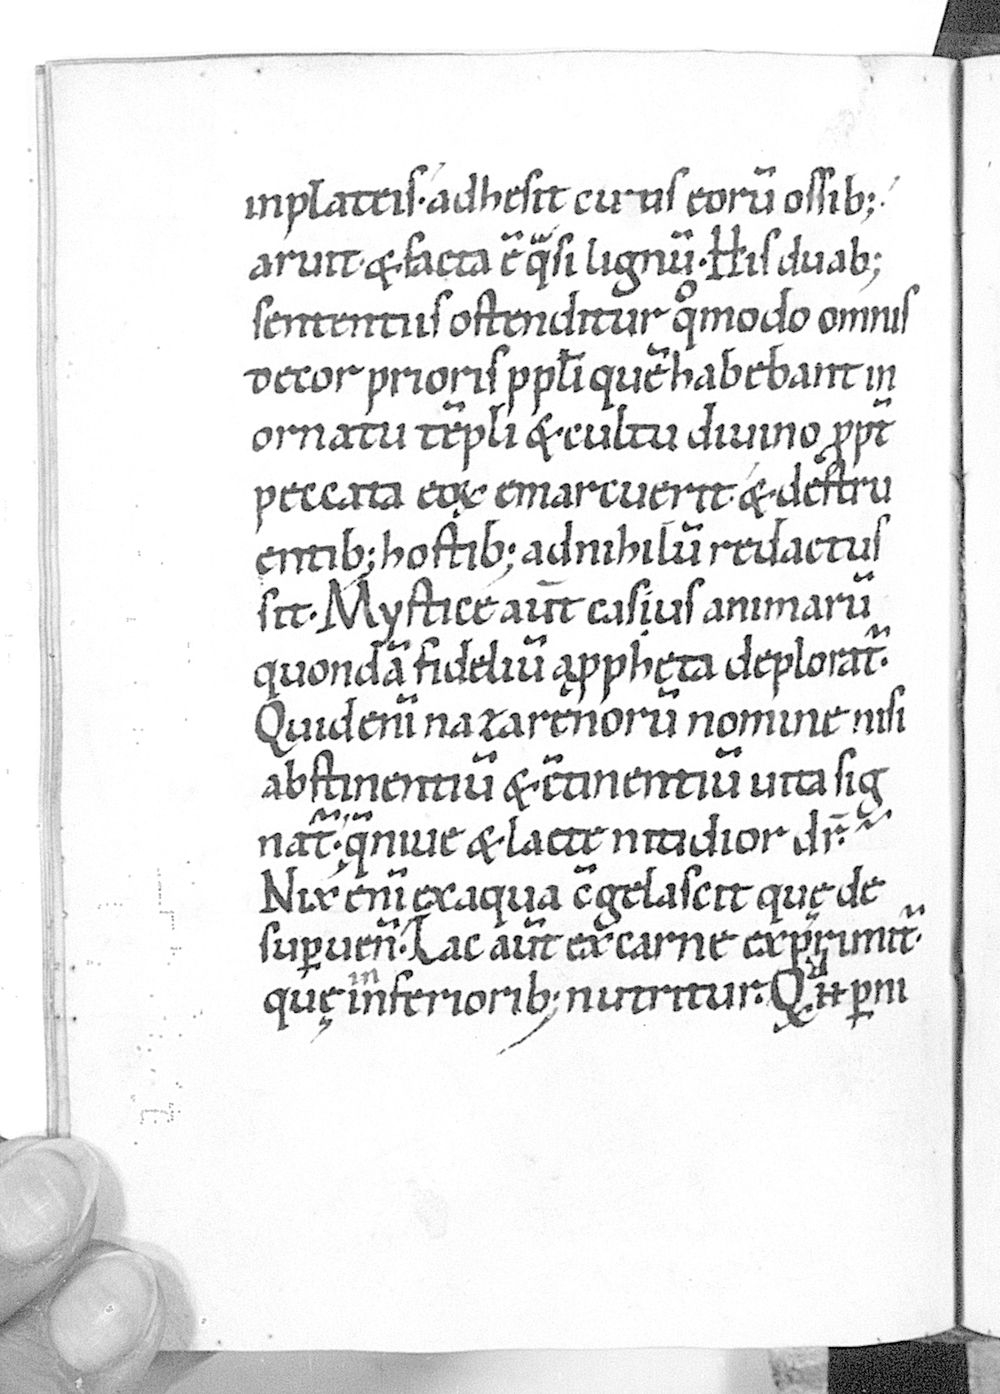 inplateis· adhesit cutis eorū ossib;
aruit· & facta ē q̄si lignū· His duab;
sententiis ostenditur qͦmodo omnis
decor prioris ppl̄i quē habebant in
ornatu tēpli & cultu diuino ꝓpt̄
peccata eoꝝ emarcuerit· & destru
entib; hostib; adnihilū redactus
sit· Mystice aūt casus animarū
quondā fideliū a ppheta deplorat̄·
Quid enī nazarenorū nomine nisi
abstinentiū & c̄tinentiū uita sig
nat̄· q̄ niue & lacte nitidior dr̄·
Nix enī ex aqua c̄gelascit quę de
suꝑ uen̄· Lac aūt ex carne exp̄rimit̄·
quę in inferiorib; nutritur· Q ꝑ ni